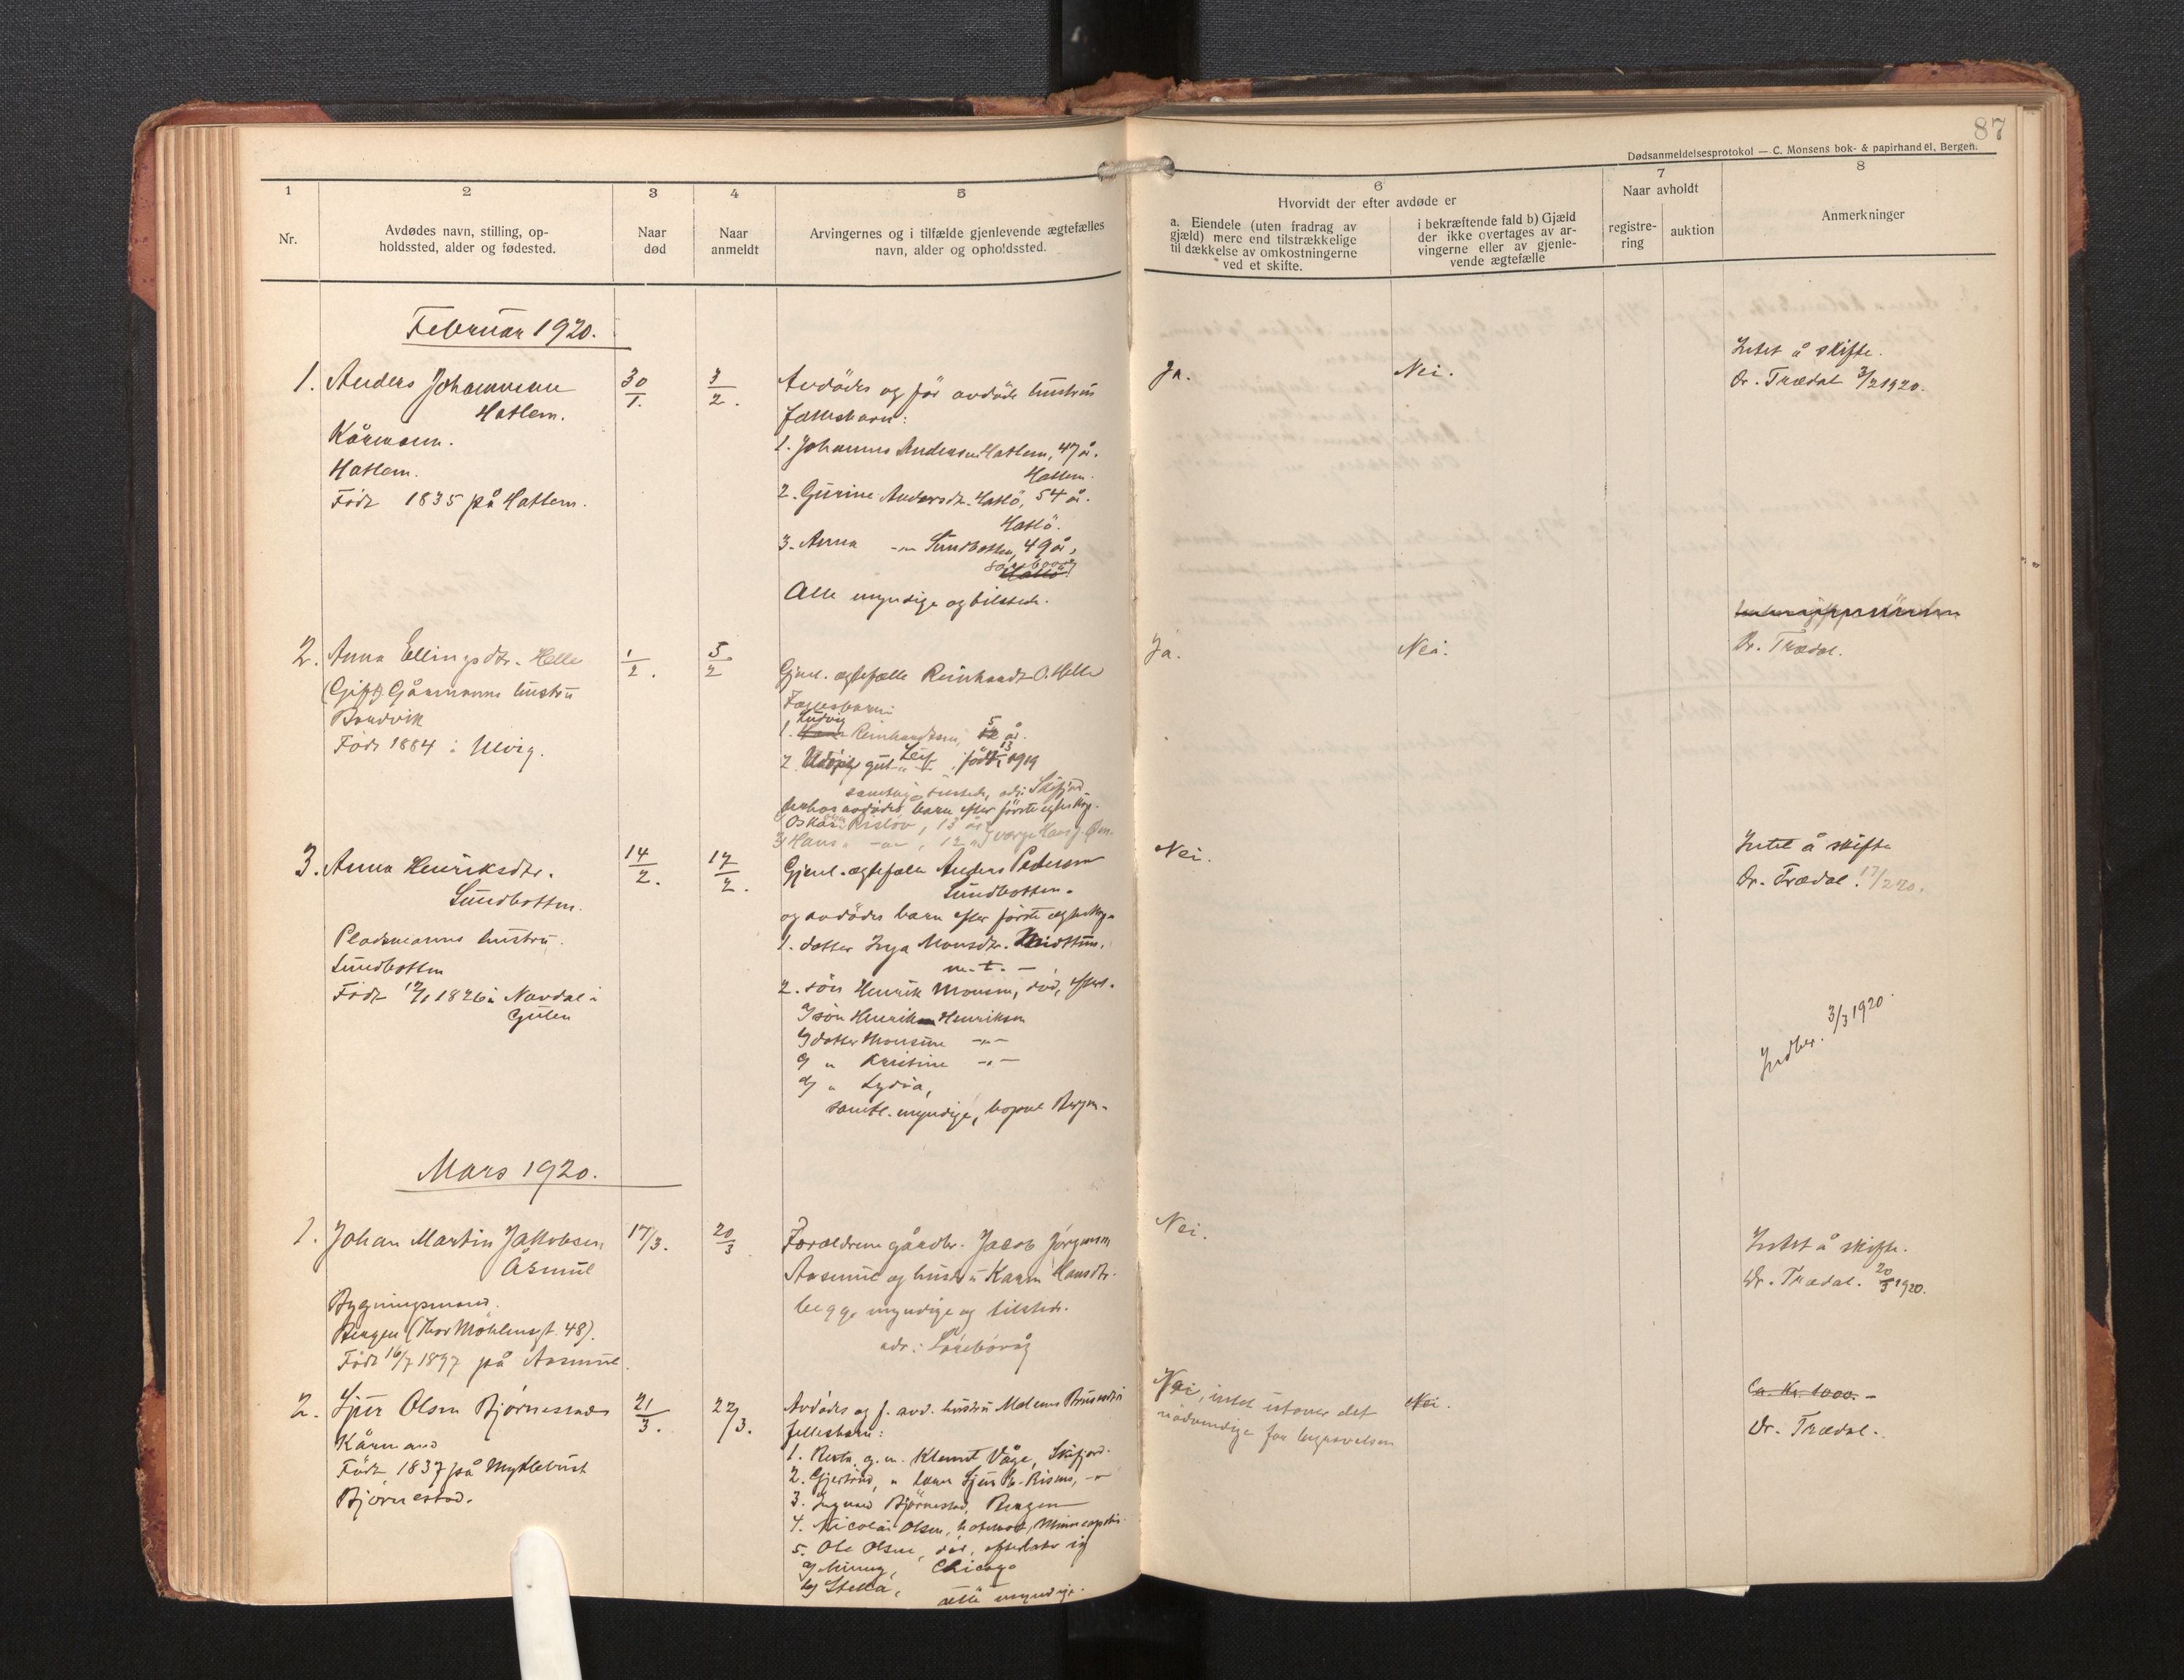 87
Dødsanmeldelsesprotokol — C. Monsens bok- & papirhandel, Bergen.
1
2
3
4
5
6
7
8
Nr.
Avdødes navn, stilling, op-
holdssted, alder og fødested.
Naar
død
Naar
anmeldt
Arvingernes og i tilfælde gjenlevende ægtefælles
navn, alder og opholdssted.
Hvorvidt der efter avdøde er
a. Eiendele (uten fradrag av
gjæld) mere end tilstrækkelige
til dækkelse av omkostningerne
ved et skifte.
i bekræftende fald b) Gjæld
der ikke overtages av ar-
vingerne eller av gjenle-
vende ægtefælle
Naar avholdt
registre-
ring
auktion
Anmerkninger
Februar 1920.
1. Anders Johannesen
Hatlem.
Kårmann.
Hatlem.
Född 1835 på Hatlem.
30/1.
3/2.
Avdödes og för avdöde hustrus
fællesbarn:
1. Johannes Andersen Hatlem, 47 år.
Hatlem.
2. Gurine Andersdtr. Hatlö, 54 år.
Hatlö.
3. Anna -"- Sundbotten, 49 år,
Hatlö
Alle myndige og tilstede.
Ja.
Nei.
Intet å skifte.
Or. Trædal 3/2 1920.
2. Anna Ellingsdtr. Helle
(Gift) Gårmanns hustru
Bondvik
Född 1884 i Ulvig.
1/2.
5/2
Gjenl. ægtefælle Reinhardt O. Helle
Fællesbarn:
Ludvig 5
1. Reinhardtsen, 12 år.
2. gut Leif född 13/1 1919
samtlig tilstede, adr: Skifjord.
derhos avdödes barn efter förste egteskap.
Oskar Risløv, 13 år
Hans -"-, 12 " værge Hans J.
Ja.
Nei.
Or. Trædal.
3. Anna Henriksdtr.
Sundbotten.
Pladsmanns hustru.
Sundbotten
Född 12/1 1826 i Nordal i
Gulen
14/2.
17/2.
Gjenl. ægtefælle Anders Pedersen
Sundbotten.
og avdödes barn efter förste egteskap
1. datter Inga Monsdtr. Midttun,
m. t. —
2. sön Henrik Monsen, död, efterl.
a/ sön Henrik Henriksen
b/ datter Monsine -"-
c/ " Kristine -"-
d/ " Lydia,
samtl. myndige, bopæl Bergen.
Nei.
Intet å skifte
Or. Trædal. 17/2 20.
Indber. 3/3 1920.
Mars 1920.
1. Johan Martin Jakobsen
Åsmul
Bygningsmand.
Bergen (Thor Möhlensgt. 48).
Född 16/7 1897 på Aasmul.
17/3.
20/3
Forældrene gårdbr. Jacob Jörgensen
Aasmul og hustru Karen Hansdtr.
begge myndige og tilstede.
adr: Sörebövåg
Nei.
Intet å skifte.
Or. Trædal. 20/3 1920.
2. Sjur Olsen Björnestad
Kårmand
Född 1837 på Myklebust
Björnestad.
21/3.
22/3.
Avdödes og f. avd. hustru Malenes
fellesbarn:
1. Berta, g. m. Klemet Våge, Skifjord.
2. Gjertrud, " Sjur Risnes, -"-
3. Ingvald Björnestad, Bergen
4. Nicolai Olsen, Minneapolis.
5. Ole Olsen, död, efterlatt sig
a/ Minny, Chicago
b/ Stella,
alle myndige.
Nei, intet utover det
nödvendige for begravelsen
Nei.
Ca. Kr. 1000.-
Or. Trædal.